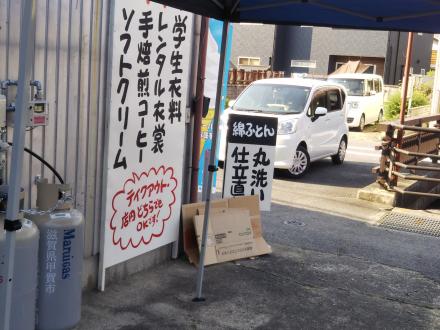 学生衣料
レンタル衣裳
手焙煎コーヒー
ソフトクリーム
テイクアウト・
店内どちらでも
OKです!
綿ふとん
丸洗い
仕立直
Maruigas
滋賀県甲賀市